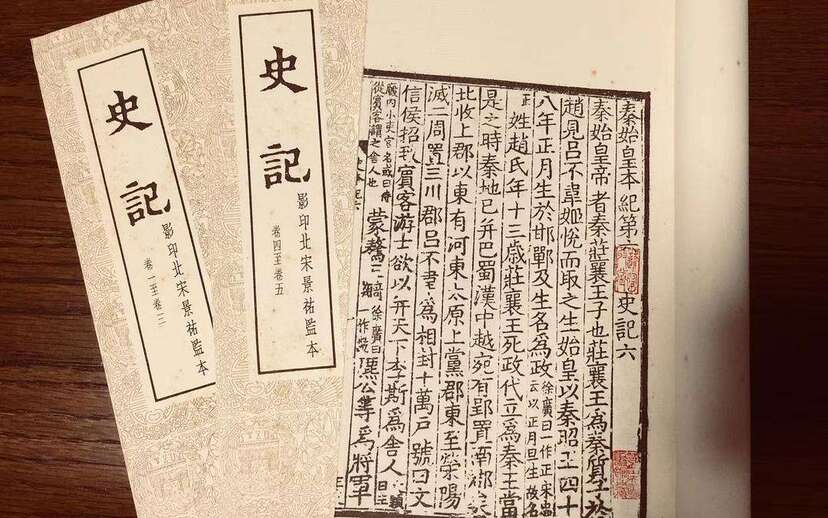 秦始皇本紀第 史記六
秦始皇帝者秦莊襄王子也莊襄王為秦質子於
趙見呂不韋姬悅而取之生始皇以秦昭王四十
八年正月生於邯鄲及生名為政徐廣曰一作正宋忠云以正月旦生故名
正姓趙氏年十三歲莊襄王死政代立為秦王當
是之時秦地已并巴蜀漢中越宛有郢置南郡矣
北收上郡以東有河東太原上黨郡東至滎陽
滅二周置三川郡呂不韋為相封十萬戶號曰文
信侯招致賓客游士欲以并天下李斯為舍人文穎曰主
廄內小吏官名或曰侍從賓客謂之舍人也蒙驁王齮徐廣曰一作齕麃公等為將軍
史記
影印北宋景祐監本
卷四至卷五
史記
影印北宋景祐監本
卷一至卷三